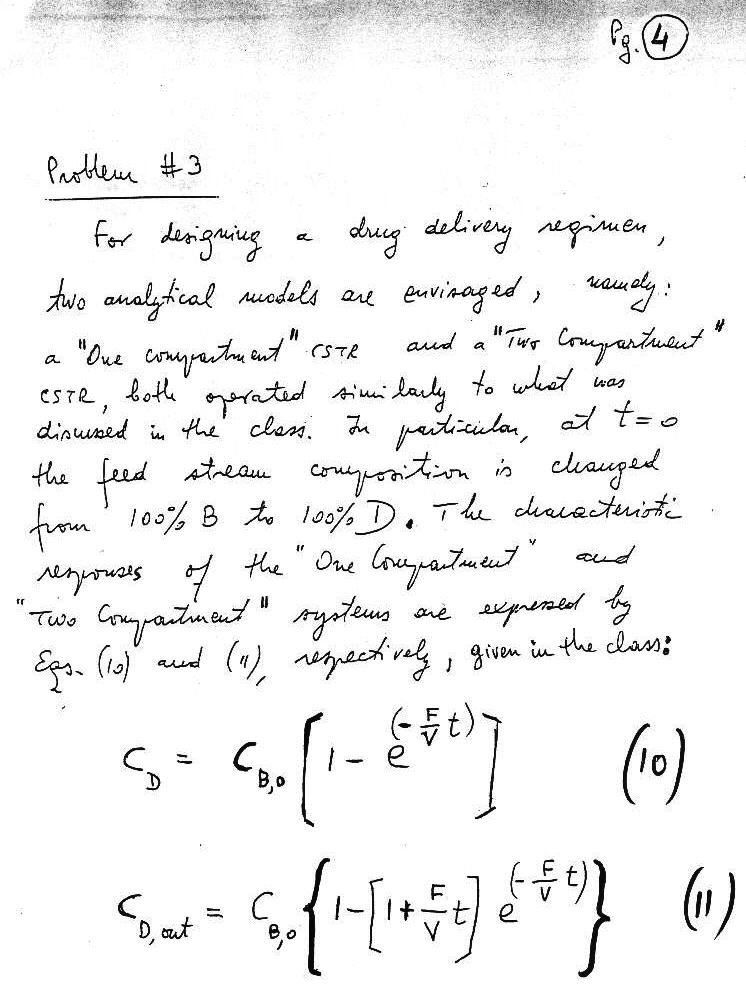 Pg. 4
Problem #3
For designing a drug delivery regimen,
two analytical models are envisaged, namely:
a "One compartment" CSTR and a "Two Compartment"
CSTR, both operated similarly to what was
discussed in the class. In particular, at t=0
the feed stream composition is changed
from 100% B to 100% D. The characteristic
responses of the "One Compartment" and
"Two Compartment" systems are expressed by
Eqs. (10) and (11), respectively, given in the class:
C_D = C_{B,0} [1 - e^{(-F/V t)}] (10)
C_{D,out} = C_{B,0} {1-[1+F/V t] e^{(-F/V t)}} (11)